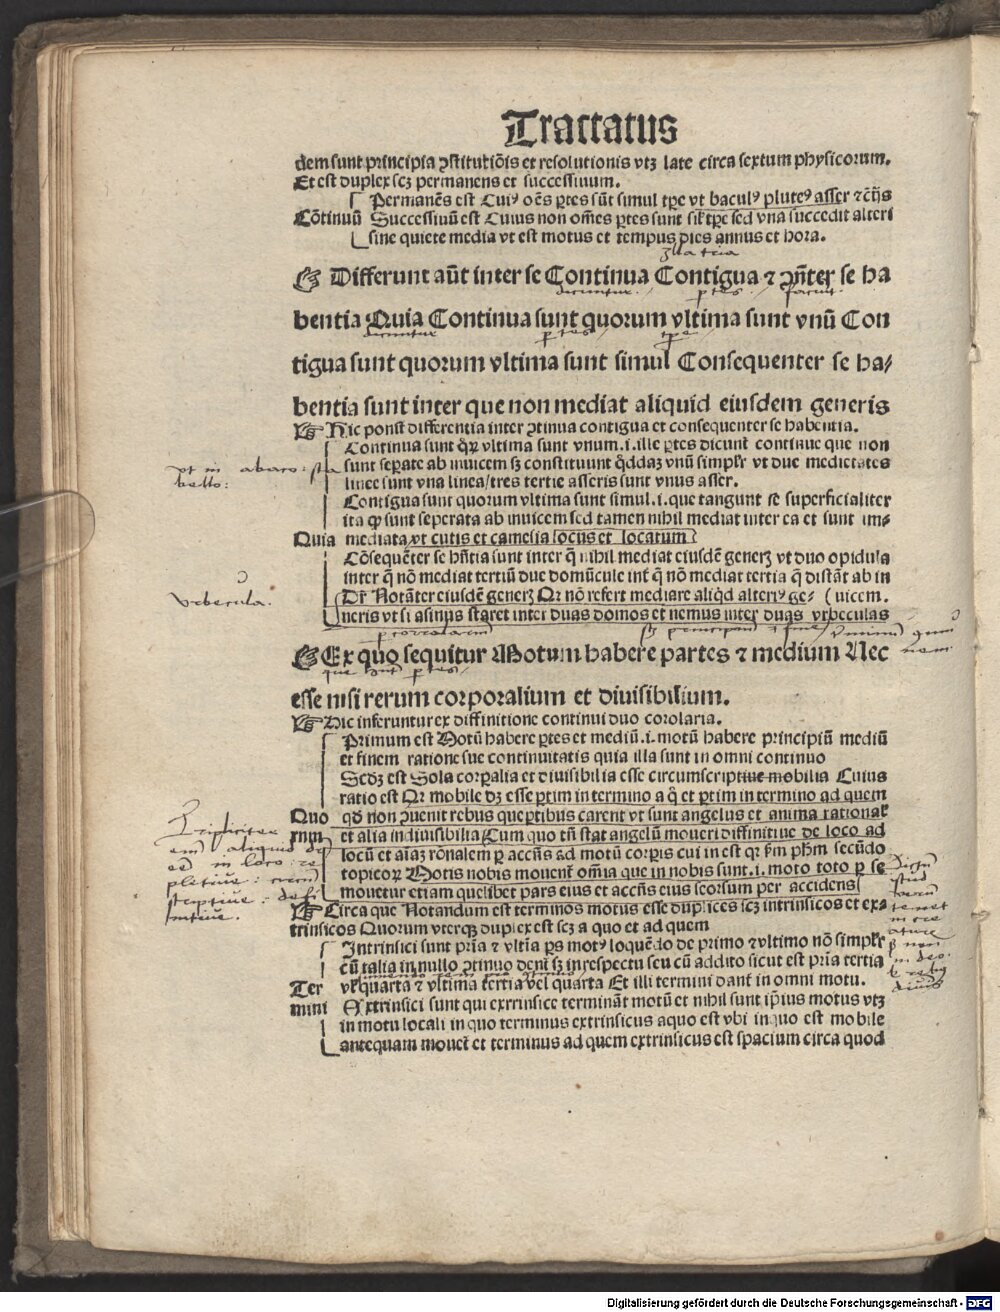 Tractatus
dem sunt principia ꝯstitutiōis et resolutionis vtꝫ late circa sextum physicorum.
Et est duplex scꝫ permanens et successiuum.
Permanēs est Cuiꝰ oēs ꝑtes sūt simul tꝑe vt baculꝰ pluteꝰ asser ⁊cētꝭ
Cōtinuū Successiuū est Cuius non om̄es ꝑtes sunt sil̄ tꝑe sed vna succedit alteri
sine quiete media vt est motus et tempus dies annus et hora.
☞ Differunt aūt inter se Continua Contigua ⁊ ꝯn̄ter se ha
bentia Quia Continua sunt quorum vltima sunt vnū Con
tigua sunt quorum vltima sunt simul Consequenter se ha/
bentia sunt inter que non mediat aliquid eiusdem generis
☞ Hic ponit differentia inter ꝯtinua contigua et consequenter se habentia.
Continua sunt qͦꝝ vltima sunt vnum .i. ille ꝑtes dicunt̄ continue que non
sunt seꝑate ab inuicem sꝫ constituunt qͦddaꝫ vnū simplr̄ vt due medietates
linee sunt vna linea/tres tertie asseris sunt vnus asser.
Contigua sunt quorum vltima sunt simul .i. que tangunt se superficialiter
ita ꝙ sunt seperata ab inuicem sed tamen nihil mediat inter ea et sunt im-
Quia mediata vt cutis et camesia locus et locatum
Cōsequēter se hn̄tia sunt inter q̄ nihil mediat eiusdē generꝭ vt duo opidula
inter q̄ nō mediat tertiū due domūcule int̄ q̄ nō mediat tertia q̄ distāt ab in
Dr̄ Notāter eiusdē generꝭ Qꝛ nō refert mediare aliqͥd alteriꝰ ge- (uicem.
neris vt si asinus staret inter duas domos et nemus inter duas vrbeculas
☞ Ex quo sequitur Motum habere partes ⁊ medium Nec
esse nisi rerum corporalium et diuisibilium.
☞ Hic inferuntur ex diffinitione continui duo corolaria.
Primum est Motū habere ꝑtes et mediū .i. motū habere principiū mediū
et finem ratione sue continuitatis quia illa sunt in omni continuo
Secdꝫ est Sola corꝑalia et diuisibilia esse circumscriptiue mobilia Cuius
ratio est Qꝛ mobile dꝫ esse ꝑtim in termino a q̄ et ꝑtim in termino ad quem
Quo qd̄ non ꝯuenit rebus que ꝑtibus carent vt sunt angelus et anima rational̄
rum et alia indiuisibilia Cum quo tn̄ stat angelū moueri diffinitiue de loco ad
locū et aīaꝫ rōnalem ꝑ accn̄s ad motū corꝑis cui in est qꝛ ẜm ph̄m secūdo
topicoꝝ Motis nobis mouent̄ om̄ia que in nobis sunt .i. moto toto ꝑ se
mouetur etiam quelibet pars eius et accn̄s eius seorsum per accidens
☞ Circa que Notandum est terminos motus esse duplices scꝫ intrinsicos et ex-
trinsicos Quorum vterqꝫ duplex est scꝫ a quo et ad quem
Intrinsici sunt pri̅a ⁊ vltīa ꝑs motꝰ loquēdo de primo ⁊ vltimo nō simplr̄
cū talia in nullo ꝯtinuo dent̄ sꝫ in respectu seu cū addito sicut est pri̅a tertia
Ter vl̄ quarta ⁊ vltima tertia vel quarta Et illi termini dant̄ in omni motu.
mini Extrinsici sunt qui extrinsice termināt motū et nihil sunt ip̄ius motus vtꝫ
in motu locali in quo terminus extrinsicus a quo est vbi in quo est mobile
antequam mouet̄ et terminus ad quem extrinsicus est spacium circa quod
vrbecula.
Digitalisierung gefördert durch die Deutsche Forschungsgemeinschaft - DFG